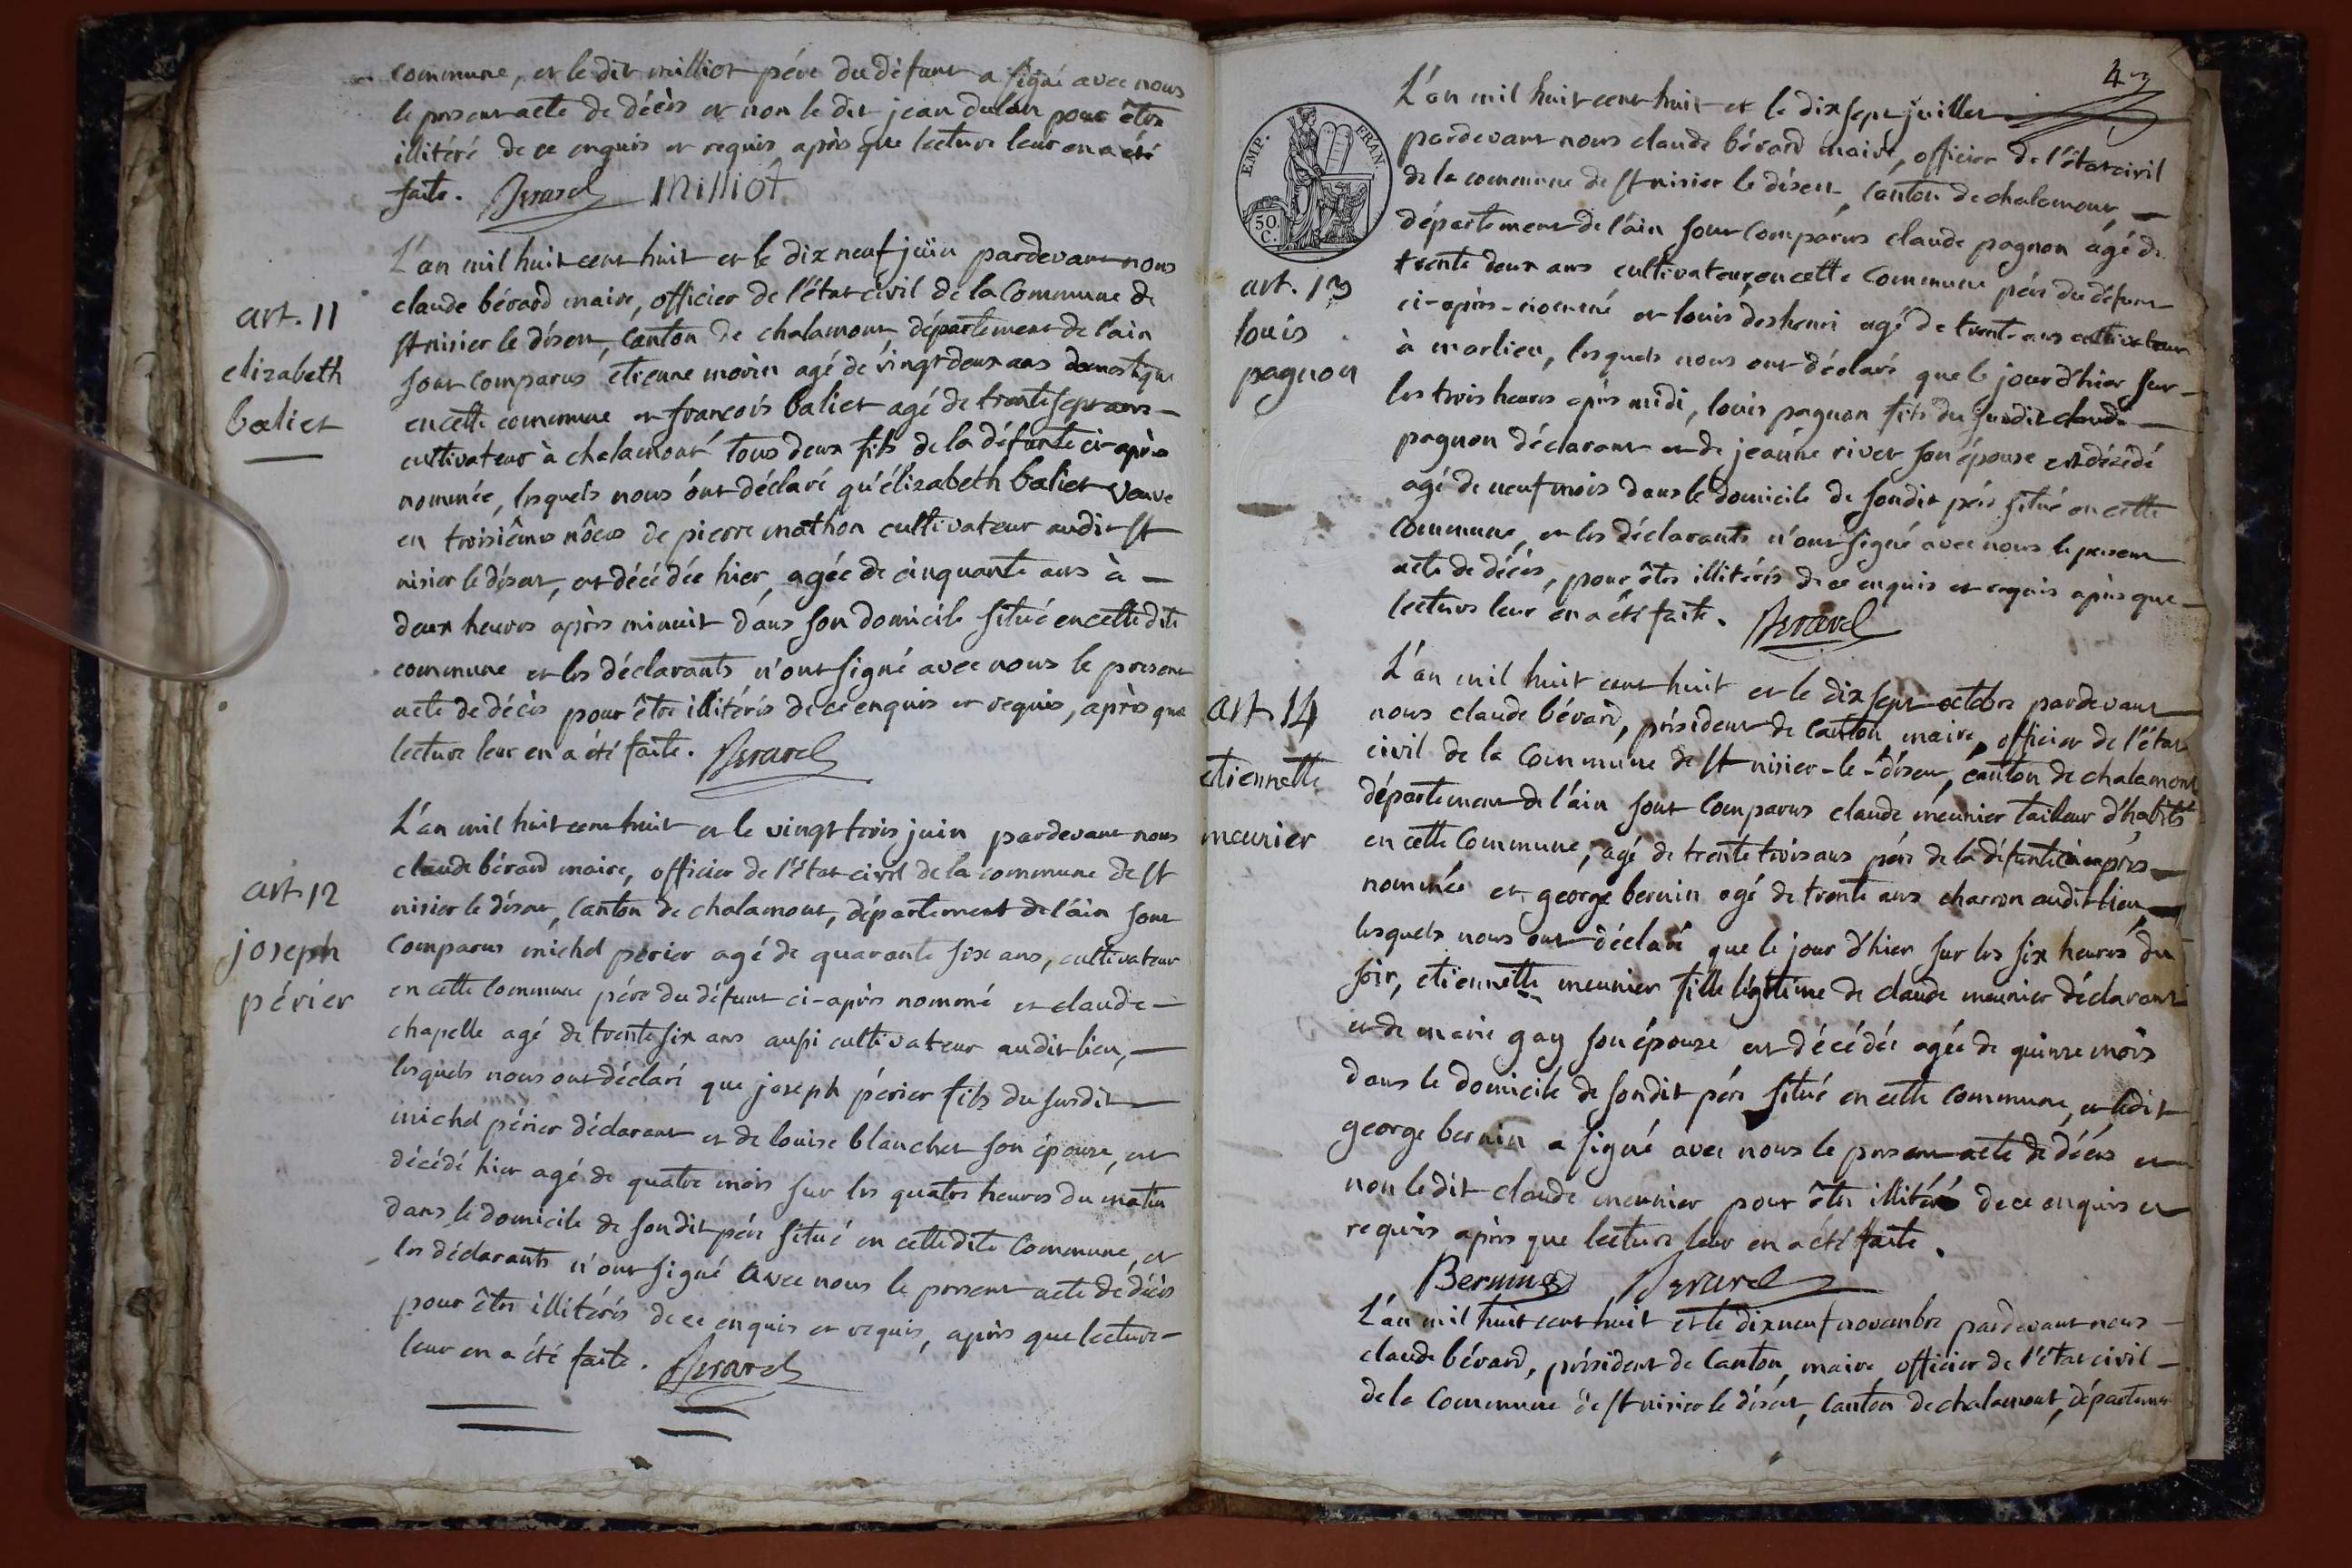 commune, et le dit milliot pére du défunt a signé avec nous
le present acte de décès et non le dit jean dulan pour être
illitéré de ce enquis et requis après que lecture leur en a été
faite. Berard Milliot
art. 11
elizabeth
baliet
L'an mil huit cent huit et le dix neuf juin pardevant nous
claude bérard maire, officier de l'état civil de la Commune de
st nisier le désert, Canton de chalamont, département de l'ain
sont comparus etienne morin agé de vingt deux ans domestique
en cette commune et francois baliet agé de trente sept ans
cultivateur à chalamont tous deux fils de la défunte ci-après
nommée, lesquels nous ont déclaré qu'élizabeth baliet veuve
en troisiême nôces de pierre mathon cultivateur audit st
nisier le désert, est décédée hier, agée de cinquante ans à
deux heures après minuit dans son domicile situé en cette dite
commune et les déclarants n'ont signé avec nous le present
acte de décès pour être illitérés de ce enquis et requis, après que
lecture leur en a été faite. Berard
art. 12
joseph
périer
L'an mil huit cent huit et le vingt trois juin pardevant nous
claude bérard maire, officier de l'état civil de la commune de st
nisier le désert, Canton de chalamont, département de l'ain sont
Comparus michel périer agé de quarante six ans, cultivateur
en cette Commune pére du défunt ci-après nommé et claude
chapelle agé de trente six ans aussi cultivateur audit lieu,
lesquels nous ont déclaré que joseph périer fils du susdit
michel périer déclarant et de louise blanchet son épouse, est
décédé hier agé de quatre mois sur les quatre heures du matin
dans le domicile de son dit pére situé en cette dite Commune, et
les déclarants n'ont signé avec nous le present acte de décès
pour être illitérés de ce enquis et requis, après que lecture
leur en a été faite. Berard
43
EMP. FRAN.
50.
C.
art. 13
louis
pagnon
L'an mil huit cent huit et le dix sept juillet
pardevant nous claude bérard maire, officier de l'état civil
de la commune de st nisier le désert, Canton de chalamont,
département de l'ain sont Comparus claude pagnon agé de
trente deux ans cultivateur, en cette Commune pére du défunt
ci-après-nommé et louis deshenri agé de trente ans cultivateur
à marlieu, lesquels nous ont déclaré que le jour d'hier sur
les trois heures après midi, louis pagnon fils du susdit claude
pagnon déclarant et de jeanne rivet son épouse est décédé
agé de neuf mois dans le domicile de sondit pére situé en cette
Commune, et les déclarants n'ont signé avec nous le present
acte de décès, pour être illitérés de ce enquis et requis après que
lecture leur en a été faite. Berard
art. 14
etiennette
meunier
L'an mil huit cent huit et le dix sept octobre pardevant
nous claude bérard, président de Canton maire, officier de l'état
civil de la Commune de st nisier-le-désert, canton de chalamont
département de l'ain sont Comparus claude meunier tailleur d'habits
en cette Commune, agé de trente trois ans pére de la défunte ci après
nommée et george bernin agé de trente ans charron audit lieu,
lesquels nous ont déclaré que le jour d'hier sur les six heures du
soir, etiennette meunier fille légitime de claude meunier déclarant
et de marie gay son épouse est décédée agée de quinze mois
dans le domicile de sondit pére situé en cette Commune, et ledit
george bernin a signé avec nous le present acte de décès et
non ledit claude meunier pour être illitéré de ce enquis et
requis après que lecture leur en a été faite.
Bernin Berard
L'an mil huit cent huit et le dix neuf novembre pardevant nous
claude bérard, président de Canton, maire officier de l'état civil
de la Commune de st nisier le désert, Canton de chalamont, département